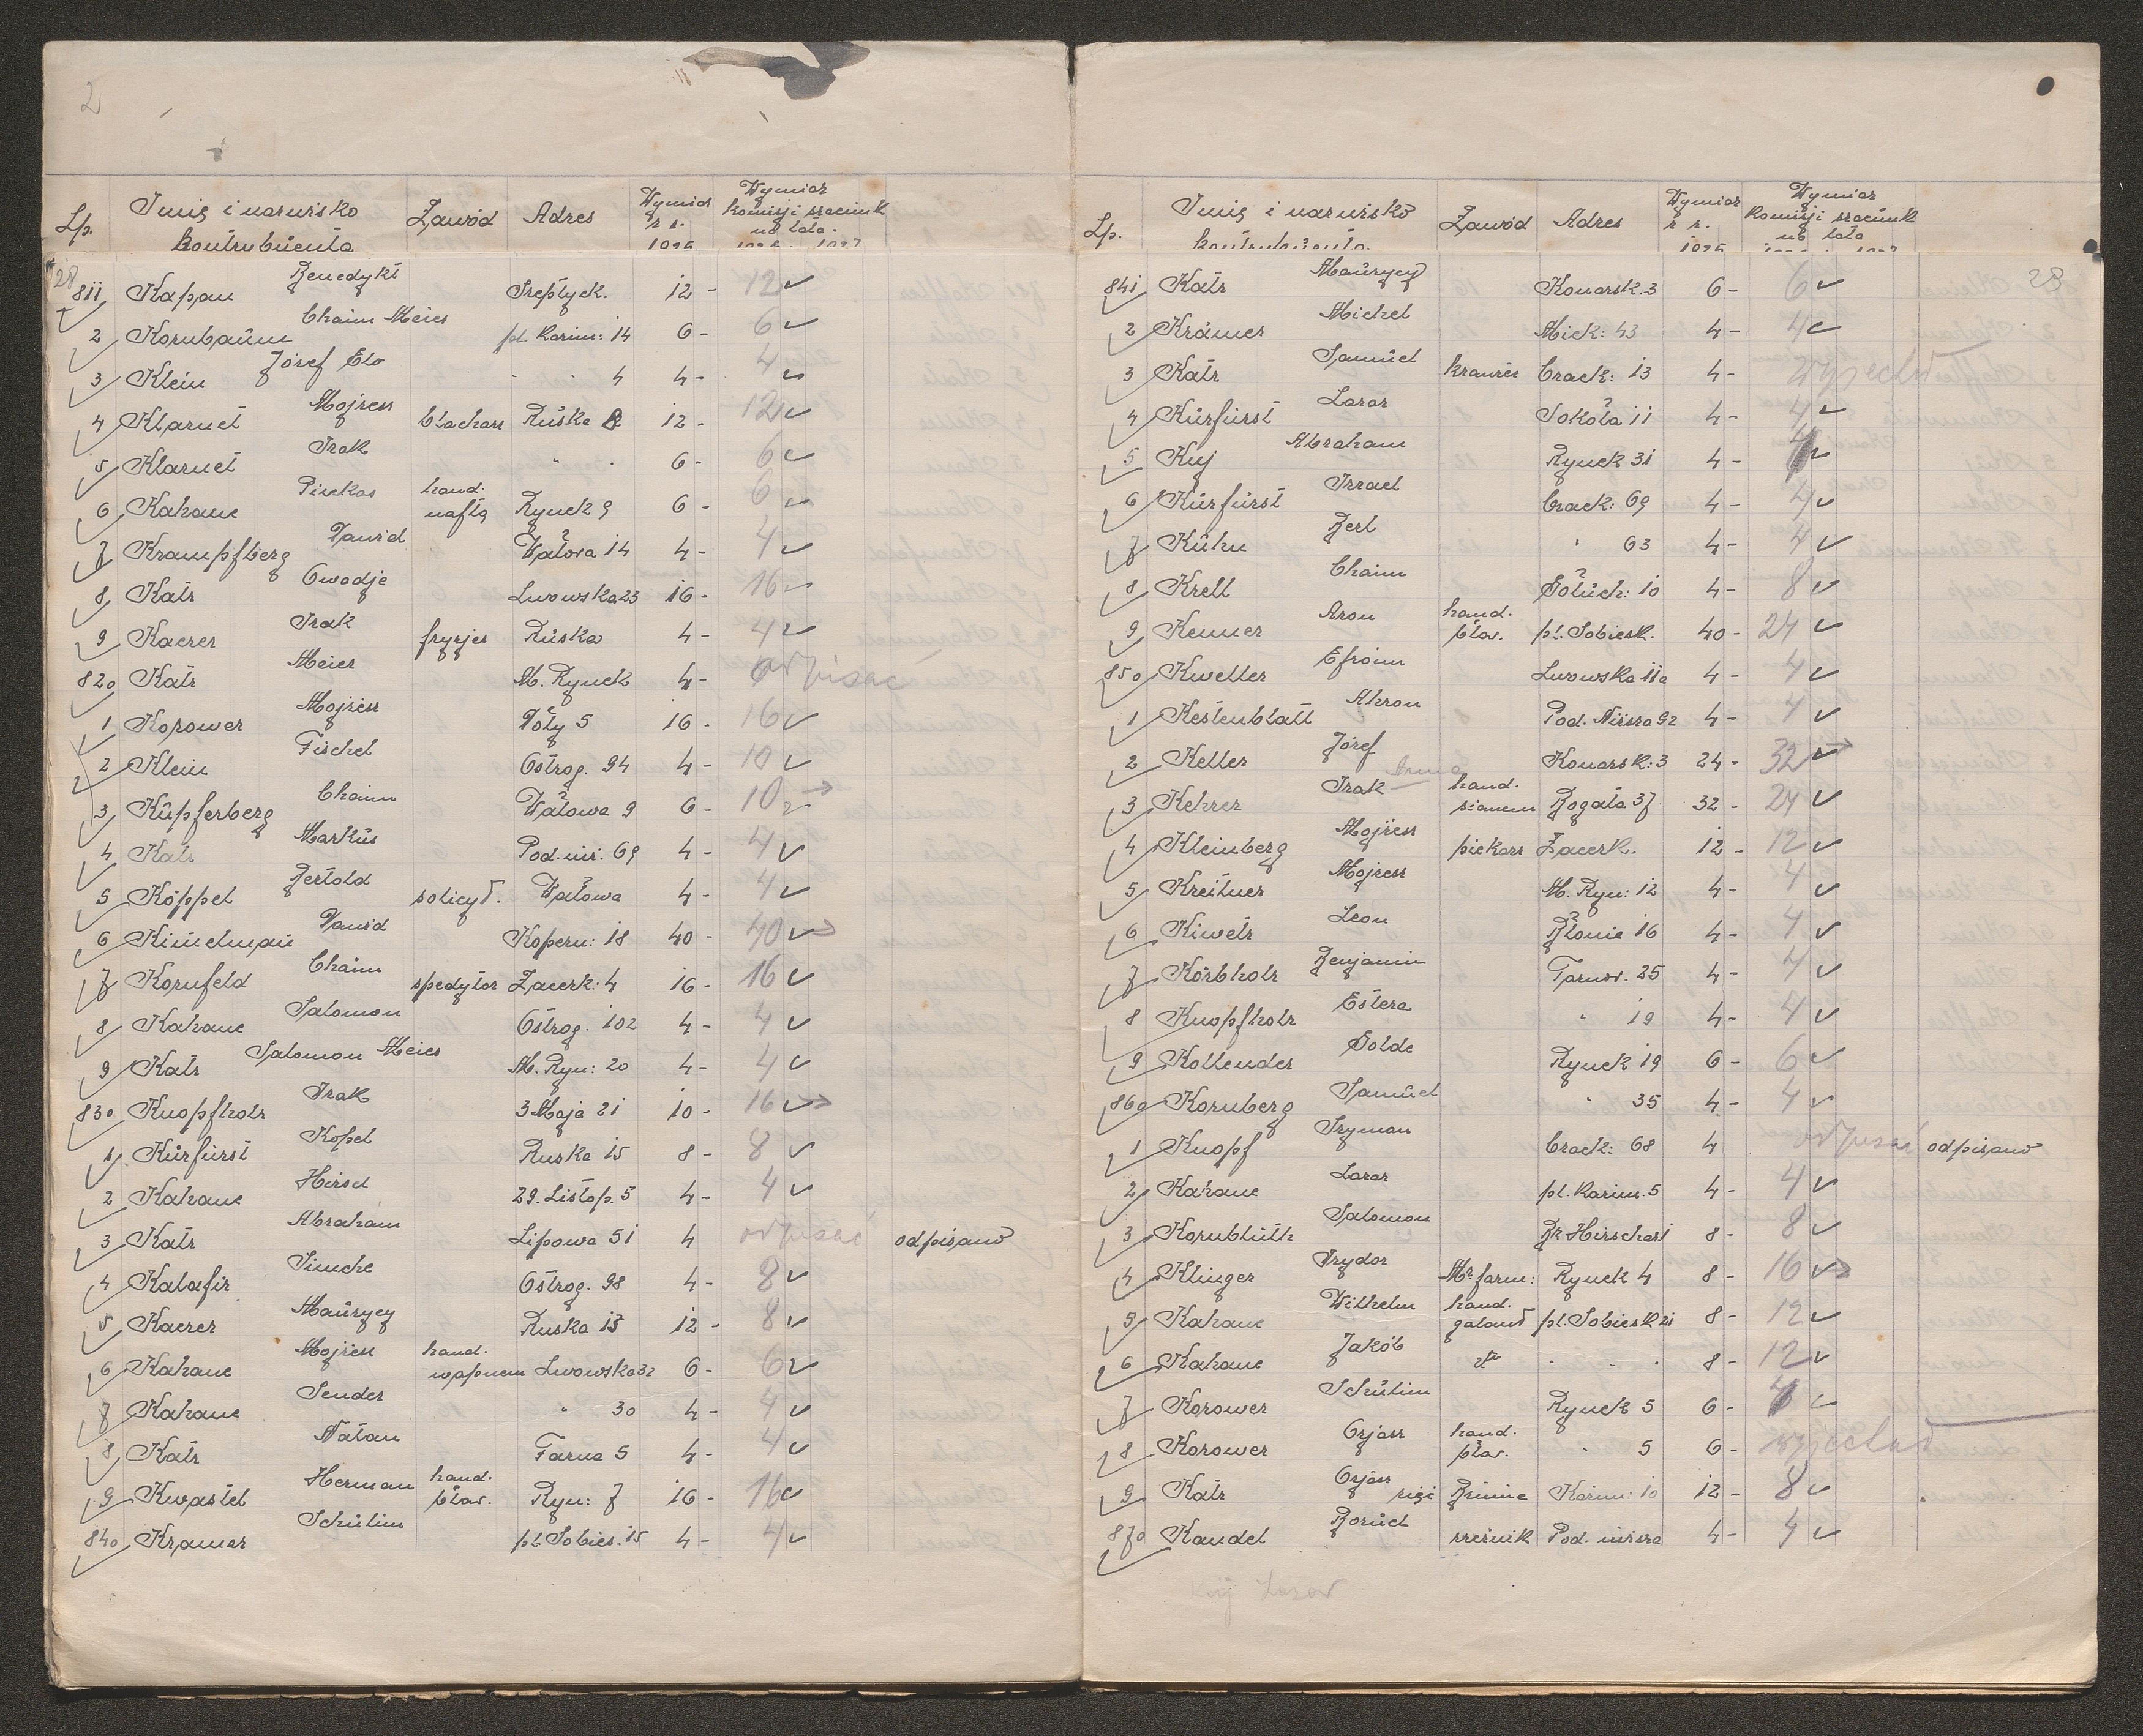 2
Lp. Imię i nazwisko kontrybuenta Zawód Adres Wymiar z r. 1925 Wymiar komisji szacunk na lata
28
811 Kapan Benedykt Szeptyck. 12 - 12
2 Kornbaum Chaim Meier pl. Kazim: 14 6 - 6
3 Klein Józef Elo " " 4 4 - 4
4 Klarnet Mojżesz blacharz Ruska 8 12 - 12
5 Klarnet Izak " " 6 - 6
6 Kahane Pinckas hand. naftą Rynek 9 6 - 6
7 Krampfberg Dawid Wałowa 14 4 - 4
8 Katz Owadje Lwowska 23 16 - 16
9 Kaczer Izak fryzjer Ruska 4 - 4
820 Katz Meier M. Rynek 4 - odpisać
1 Korower Mojżesz Doły 5 16 - 16
2 Klein Fischel Ostrog. 94 4 - 10
3 Kupferberg Chaim Wałowa 9 6 - 10
4 Katz Markus Pod. niż. 69 4 - 4
5 Köppel Bertold solicyt. Wałowa 4 - 4
6 Kimelman Dawid Kopern: 18 40 - 40
7 Kornfeld Chaim spedytor Zacerk: 4 16 - 16
8 Kahane Salomon Ostrog. 102 4 - 4
9 Katz Salomon Meier M. Ryn: 20 4 - 4
830 Knopfholz Izak 3 Maja 21 10 - 16
1 Kurfürst Kopel Ruska 15 8 - 8
2 Kahane Hirsch 29. Listop. 5 4 - 4
3 Katz Abraham Lipowa 51 4 odpisać odpisano
4 Kalafir Simche Ostrog. 98 4 - 8
5 Kaczer Maurycy Ruska 13 12 - 8
6 Kahane Mojżesz hand. wapnem Lwowska 32 6 - 6
7 Kahane Sender " 30 4 - 4
8 Katz Natan Farna 5 4 - 4
9 Kwastel Herman hand. bław. Ryn: 7 16 - 16
840 Kramer Schulim pl. Sobies. 15 4 - 4
Lp. Imię i nazwisko kontrybuenta Zawód Adres Wymiar z r. 1925 Wymiar komisji szacunk na lata
28
841 Katz Maurycy Konarsk. 3 6 - 6
2 Krämer Michel Mick: 43 4 - 4
3 Katz Samuel krawiec Czack: 13 4 - wyjechał
4 Kurfürst Lazar Sokoła 11 4 - 4
5 Kuj Abraham Rynek 31 4 -
6 Kurfürst Izrael Czack: 69 4 - 4
7 Kühn Berl " 63 4 - 4
8 Krell Chaim Gołuch: 10 4 - 8
9 Kenner Aron hand. bław. pl. Sobiesk. 40 - 24
850 Kweller Efroim Lwowska 11a 4 - 4
1 Kestenblatt Ahron Pod. Niższa 92 4 - 4
2 Keller Józef Konarsk: 3 24 - 32
3 Kehrer Izak hand. sianem Rogata 37 32 - 24
4 Kleinberg Mojżesz piekarz Zacerk. 12 - 12
5 Kreitner Mojżesz M. Ryn: 12 4 - 4
6 Kiwetz Leon Błonie 16 4 - 4
7 Korbholz Benjamin Tarnow. 25 4 - 4
8 Knopfholz Estera " 19 4 - 4
9 Kollender Golde Rynek 19 6 - 6
860 Kornberg Samuel " 35 4 - 4
1 Knopf Szymon Czack: 68 4 odpisać odpisano
2 Kahane Lazar pl. Kazim. 5 4 - 4
3 Kornblüth Salomon Br Hirschart 8 - 8
4 Klinger Izydor Mr farm: Rynek 4 8 - 16
5 Kahane Wilhelm hand. galant pl. Sobiesk 21 8 - 12
6 Kahane Jakób " " " 8 - 12
7 Korower Schulim Rynek 5 6 -
8 Korower Ozjasz hand. bław. " 5 6 - wyjechał
9 Katz Ozjasz Kazim: 10 12 - 8
870 Kandel Boruch rzeźnik Pod. niższa 4 - 4
Kuj Lazar